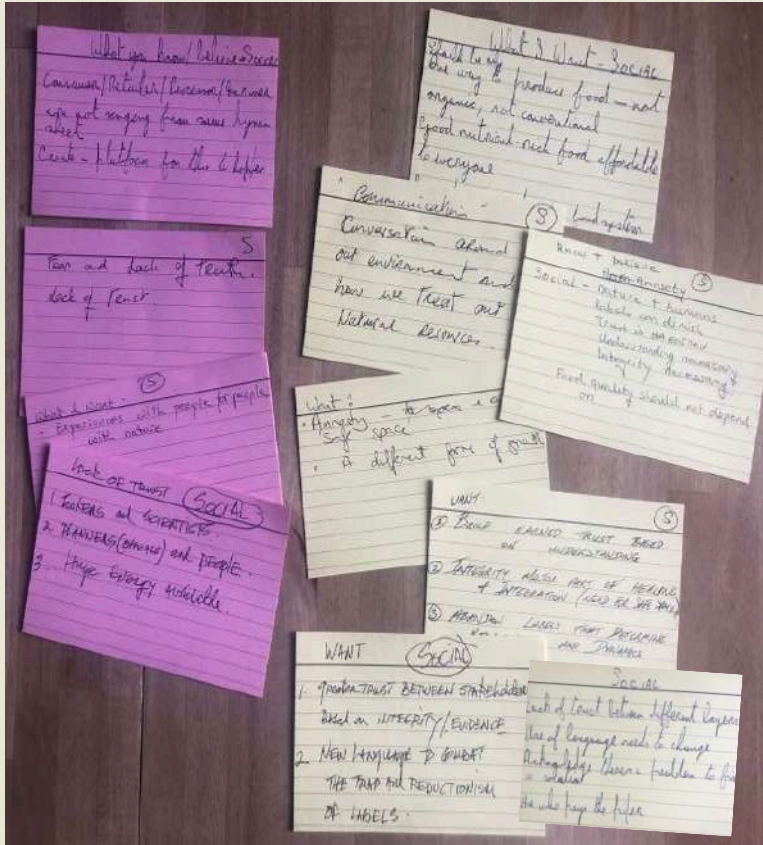 What you know/believe - Social
Consumer/Retailer/Processor/Farmer
are not singing from same hymn
sheet
Create - platform for this to happen
S
Fear and Lack of Truth.
Lack of Trust.
What I want - S
• Experiences with people for people
with nature
LACK OF TRUST SOCIAL
1. and SCIENTISTS.
2. PLANNERS and PEOPLE.
3... Huge Energy available.
What I Want - SOCIAL
one way to produce food - not
organic, not conventional
Good nutrient-rich food affordable
to everyone
food system
"Communication" S
Conversation around
our environment and
how we Treat our
Natural Resources.
Know + believe
S
Social - nature + humans
labels can diminish
Trust is
Understanding necessary
Integrity necessary
Food quality should not depend
on
What?
• - to space = a
safe space
• A different form of
WANT. S
① EARNED TRUST BASED
ON UNDERSTANDING
② INTEGRITY MAJOR PART OF HEALING
+ INTEGRATION (NEED FOR SAFE SPACE)
③ ABANDON LABELS THAT DETERMINE
AND DYNAMICS
WANT SOCIAL
1. greater TRUST BETWEEN STAKEHOLDERS
based on INTEGRITY/EVIDENCE
2. NEW LANGUAGE TO COMBAT
THE TRAP AND REDUCTIONISM
OF LABELS.
SOCIAL
Lack of trust between different layers
Use of language needs to change
Acknowledge there's a problem to find
a solution
He who pays the piper